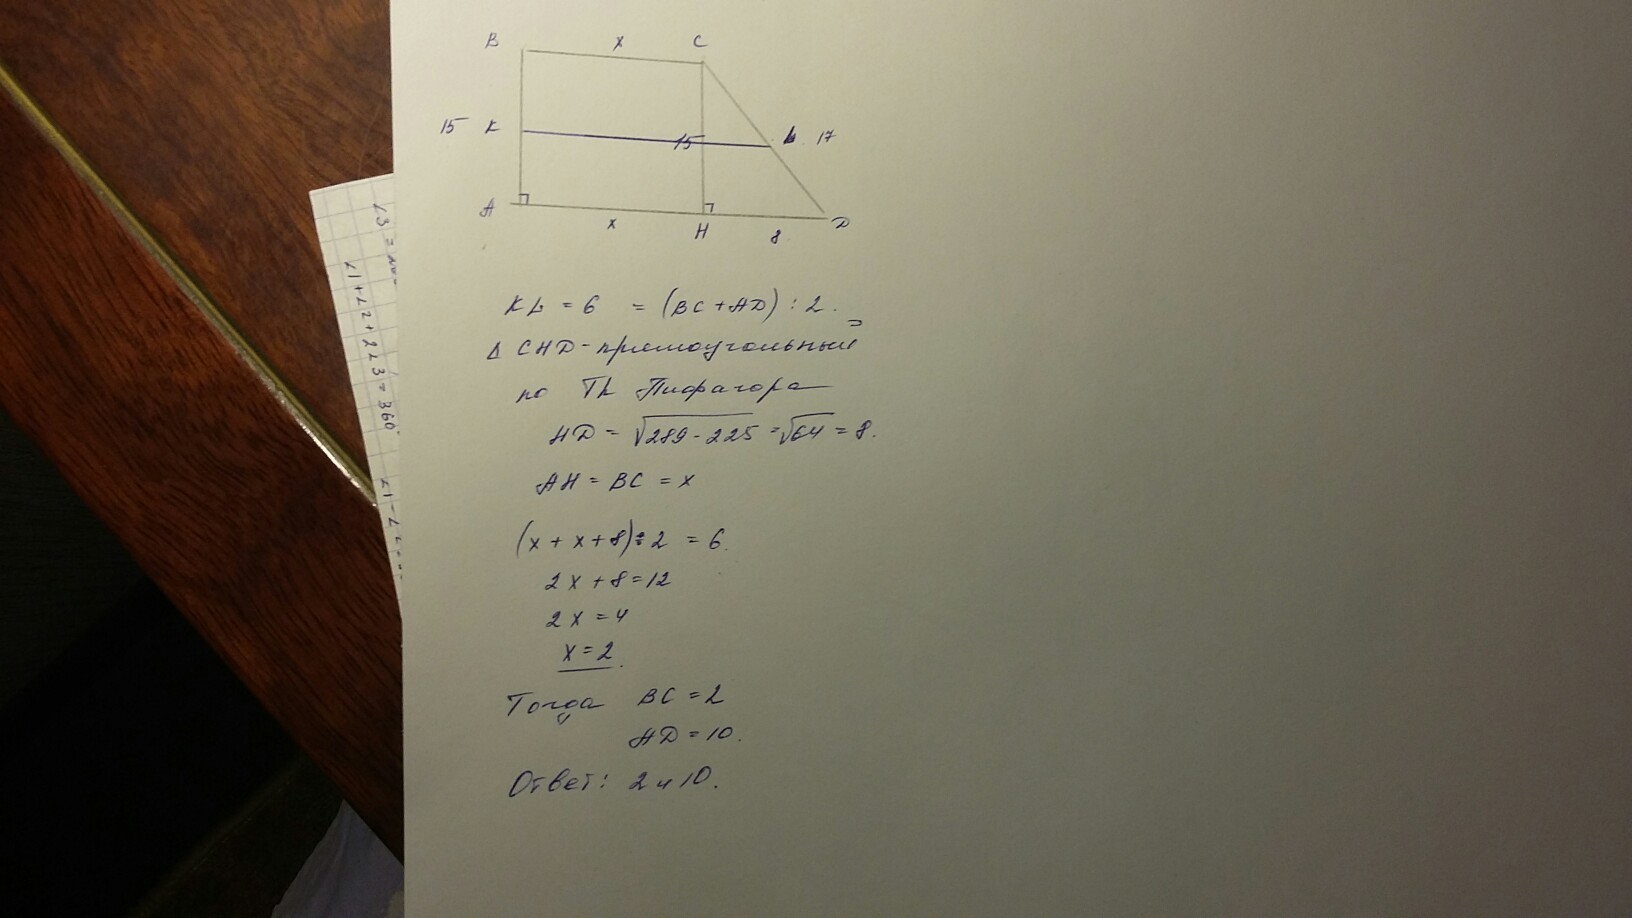 B x C
15 K 15 L 17
A x H 8 D
KL = 6 = (BC + AD) : 2.
Δ CHD - прямоугольный
по Th Пифагора
HD = √289 - 225 = √64 = 8.
AH = BC = x
(x + x + 8) : 2 = 6.
2x + 8 = 12
2x = 4
x = 2.
Тогда BC = 2
AD = 10.
Ответ: 2 и 10.
∠1 + ∠2 + 2∠3 = 360°